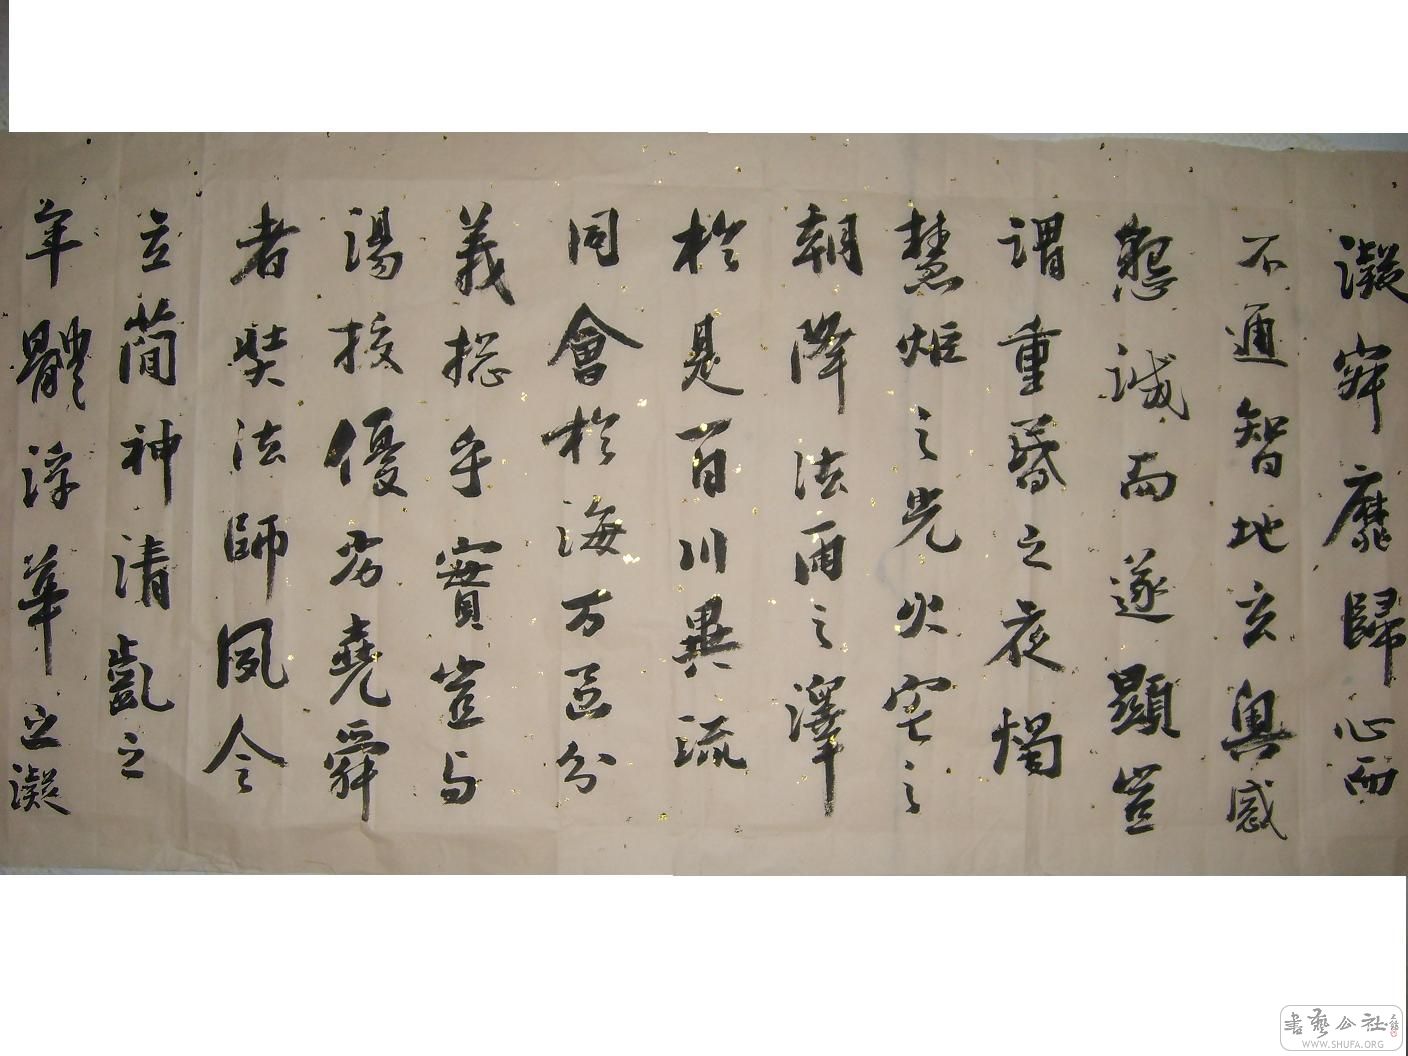 凝寂靡歸心而
不通智地玄奧感
懇誠而遂顯豈
謂重昏之夜燭
慧炬之光火宅之
朝降法雨之澤
於是百川異流
同會於海万區分
義揔乎實豈与
湯挍優劣堯舜
者奘法師夙令
立簡神清齔之
年體浮華世凝
書藝公社
WWW.SHUFA.ORG